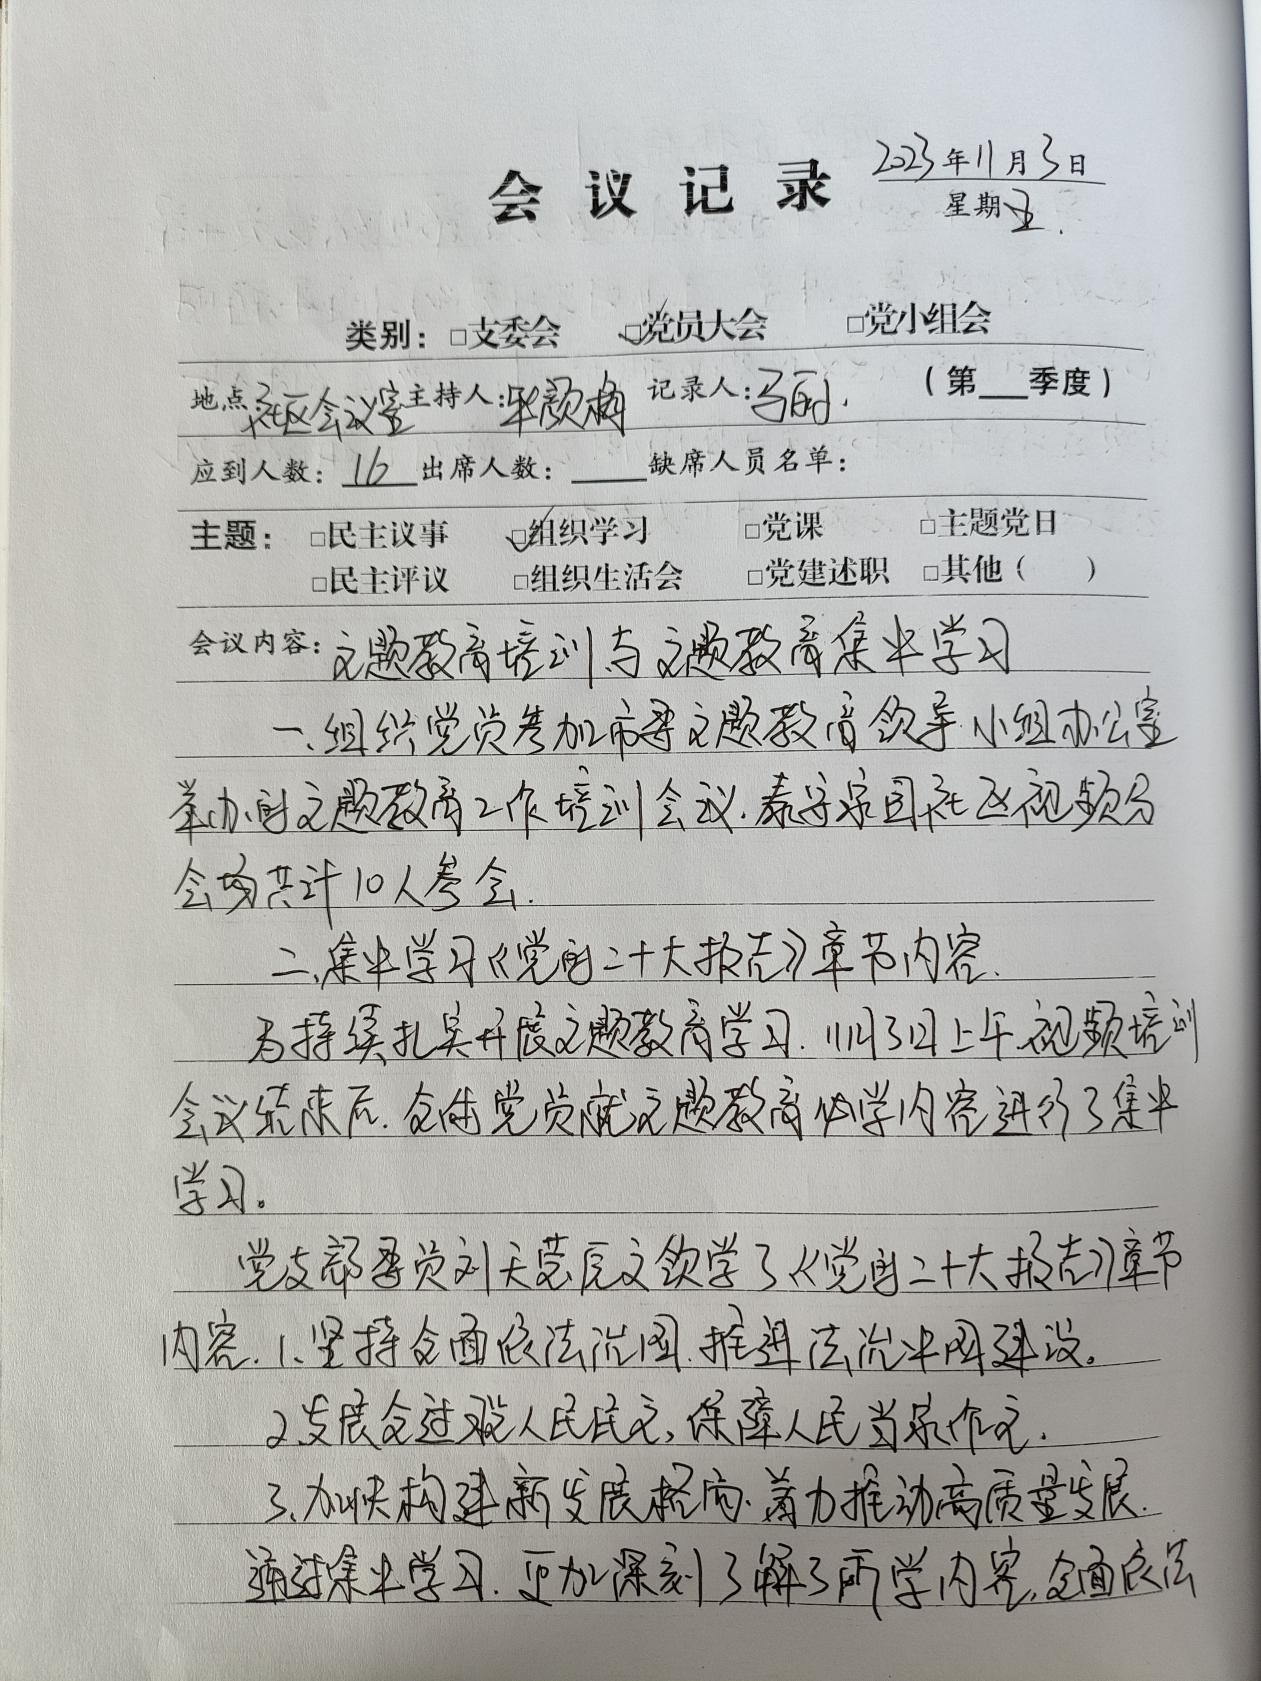 会议记录
2023年11月3日
星期五.
类别：□支委会 ☑党员大会 □党小组会
地点 社区会议室 主持人： 记录人：马丽. （第___季度）
应到人数：16 出席人数：____缺席人员名单：
主题：□民主议事 ☑组织学习 □党课 □主题党日
□民主评议 □组织生活会 □党建述职 □其他（ ）
会议内容：主题教育培训与主题教育集中学习
一、组织党员参加市委主题教育领导小组办公室
举办的主题教育工作培训会议.泰安家园社区视频分
会场共计10人参会.
二、集中学习《党的二十大报告》章节内容.
为持续扎实开展主题教育学习.11月3日上午视频培训
会议结束后.全体党员就主题教育必学内容进行了集中
学习。
党支部委员刘天 领学了《党的二十大报告》章节
内容.1、坚持全面依法治国.推进法治中国建设。
2、发展全过程人民民主，保障人民当家作主.
3、加快构建新发展格局.着力推动高质量发展.
通过集中学习.更加深刻了解了所学内容，全面依法